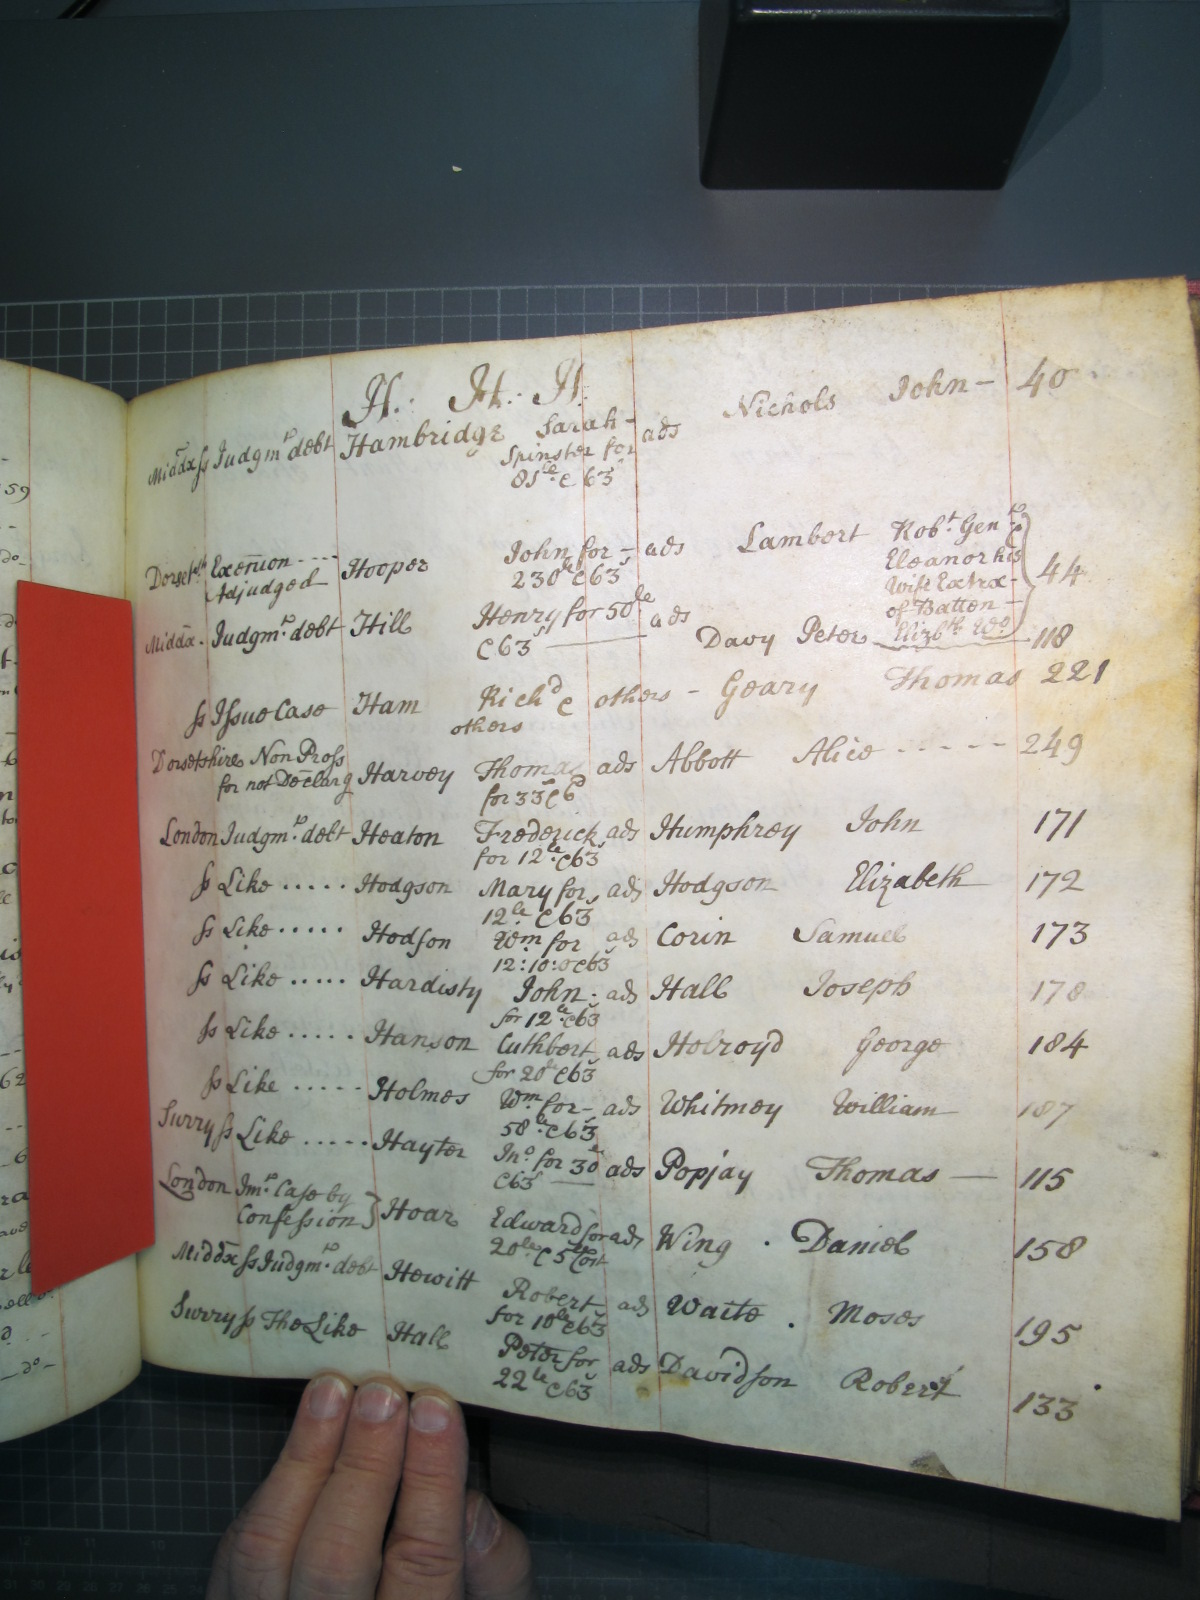 H. H. H.
Middx ss Judgmt debt Hambridge Sarah - ads Nichols John - 40
Spinster for
81le c 63s
Dorsetsh Execucon ---- Hooper John for - ads Lambert Robt Gent
Adjudged 230le c63s Eleanor his
Wife Extrx - 44
of Batten -
Middx. Judgmt debt Hill Henry for 50le ads Davy Peter Elizbth Wo 118
c63s
ss Issue Case Ham Richd c others - Geary Thomas 221
others
Dorsetshire Non Pross Harvey Thomas ads Abbott Alice ----- 249
for not Declarg for 33s c 6d
London Judgmt debt Heaton Frederick ads Humphrey John 171
for 12le c63s
ss Like ..... Hodgson Mary for ads Hodgson Elizabeth 172
12le c63s
ss Like ..... Hodson Wm for ads Corin Samuel 173
12:10:0 c63s
ss Like ..... Hardisty John ads Hall Joseph 178
for 12le c63s
ss Like ..... Hanson Cuthbert ads Holroyd George 184
for 20le c63s
ss Like ..... Holmes Wm for - ads Whitmey William 187
58le c63s
Surry ss Like ..... Hayter Jno for 30le ads Popjay Thomas — 115
c63s
London Jmt Case by Hoar Edward for ads Wing . Daniel 158
Confession 20le c 5s Cost
Middx ss Judgmt debt Hewitt Robert ads Waite . Moses 195
for 10le c63s
Surry ss The Like Hall Peter for ads Davidson Robert 133
22le c63s
59